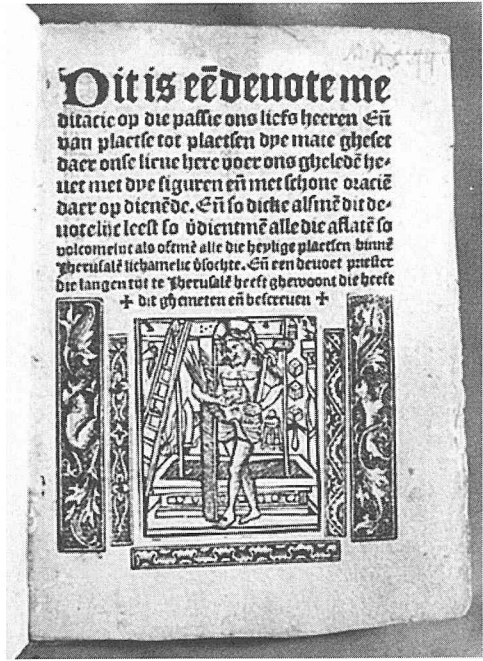 Dit is eē deuote me
ditacie op die passie ons liefs heeren Eñ
van plaetse tot plaetsen dye mate gheset
daer onse lieue here voer ons gheledē he-
uet met dye figuren eñ met schone oraciē
daer op dienēde. Eñ so dicke alsmē dit de-
uotelijc leest so v̄dientmē alle die aflatē so
volcomelijc als oftmē alle die heylige plaetsen binnē
Jherusalē lichamelijc v̄sochte. Eñ een deuoet priester
die langen tijt te Jherusalē heeft ghewoont die heeft
✚ dit ghemeten eñ bescreuen ✚